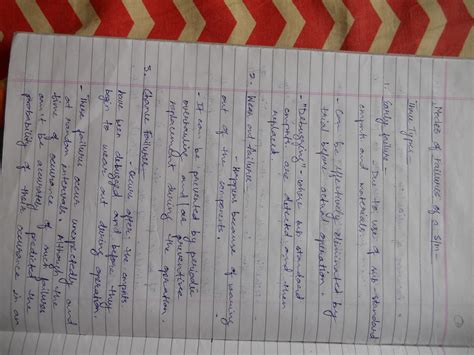 Modes of failures of a s/m
Three Types
1. Early failure -
- Due to use of sub-standard
cmpnts and materials.
- Can be effectively eliminated by
trial before actual operation.
- "Debugging" - where sub standard
cmpnts are detected and then
replaced
2. Wear out failure
- Happens because of wearing
out of the components.
- It can be prevented by periodic
overhauling and preventive
replacement during the operation.
3. Chance failures -
- Occurs after the cmpnts
have been debugged and before they
begin to wear out during operation.
- These failures occur unexpectedly and
at random intervals. Although the
time of occurance of such failure
can't be accurately predicted the
probability of their occurance in an